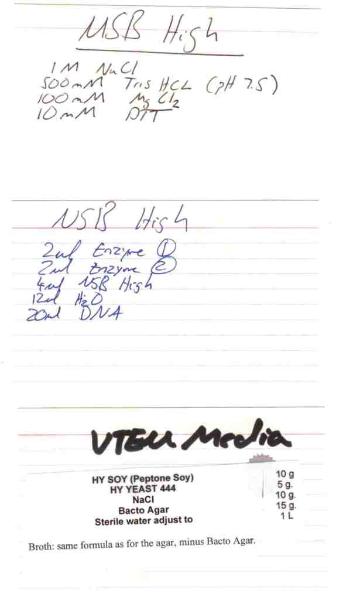 NSB High
1M NaCl
500mM Tris HCL (pH 7.5)
100mM MgCl2
10mM DTT
NSB High
2ul Enzyme ①
2ul Enzyme ②
4ul NSB High
12ul H2O
20ul DNA
VTEU Media
HY SOY (Peptone Soy) 10 g
HY YEAST 444 5 g.
NaCl 10 g.
Bacto Agar 15 g.
Sterile water adjust to 1 L
Broth: same formula as for the agar, minus Bacto Agar.